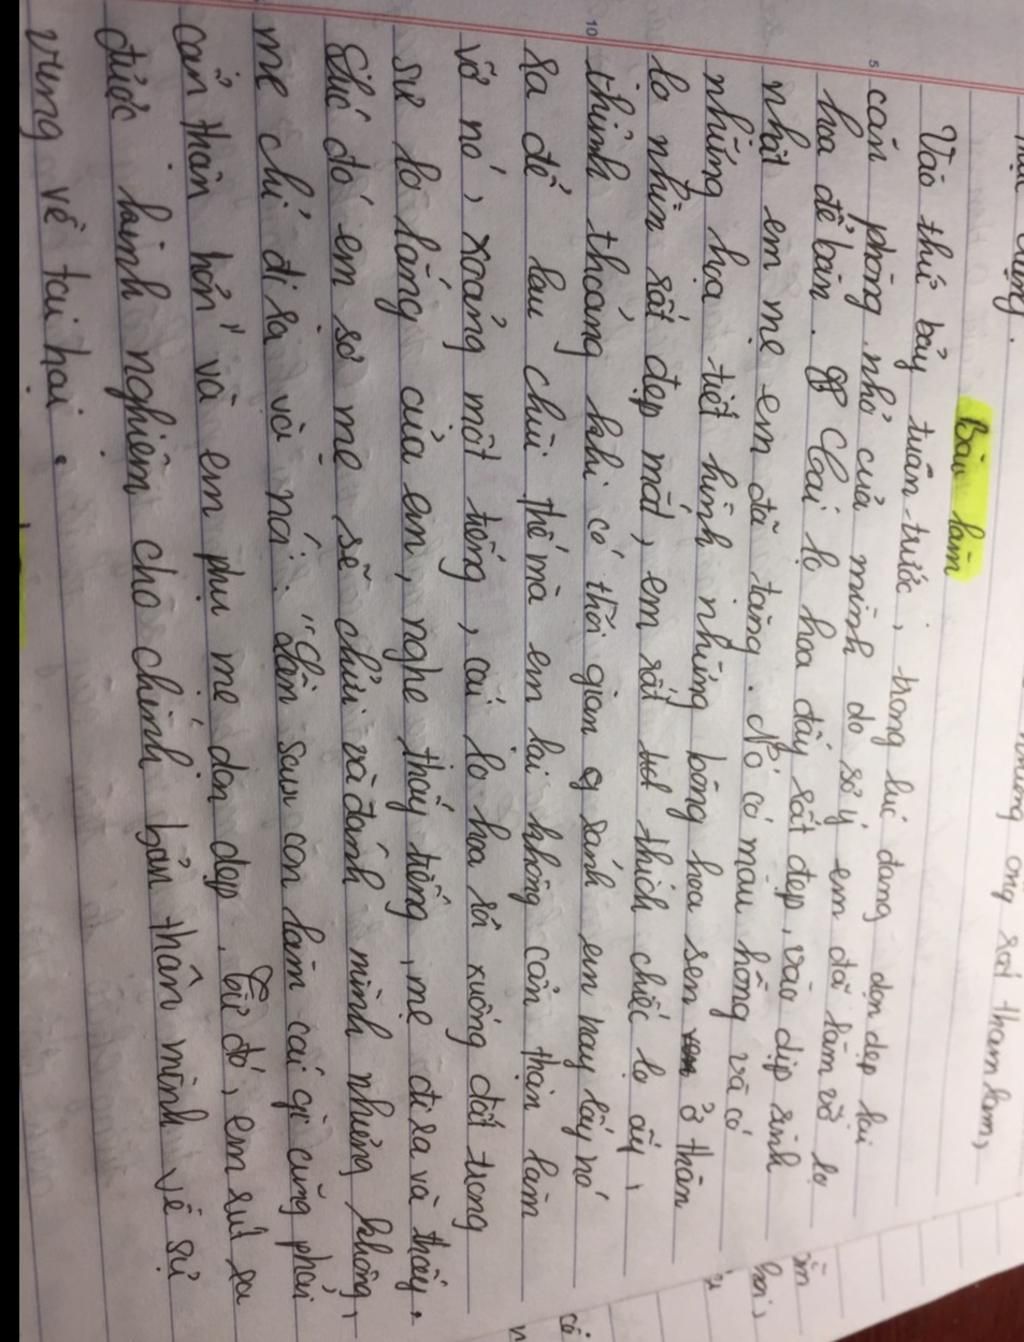 Bài làm
Vào thứ bảy tuần trước, trong lúc đang dọn dẹp lại
căn phòng nhỏ của mình do sơ ý em đã làm vỡ lọ
hoa để bàn. Cái lọ hoa đấy rất đẹp, vào dịp sinh
nhật em mẹ em đã tặng. Nó có màu hồng và có
những họa tiết hình những bông hoa sen ở thân
lọ nhìn rất đẹp mắt, em rất thích chiếc lọ ấy,
thỉnh thoảng khi có thời gian rảnh em hay lấy nó
ra để lau chùi thế mà em lại không cẩn thận làm
vỡ nó, xoảng một tiếng, cái lọ hoa rơi xuống đất trong
sự lo lắng của em, nghe thấy tiếng, mẹ đi ra và thấy.
Lúc đó em sợ mẹ sẽ chửi và đánh mình nhưng không,
mẹ chỉ đi ra và nói: "Lần sau con làm cái gì cũng phải
cẩn thận hơn" và em phụ mẹ dọn dẹp. Từ đó, em rút ra
được kinh nghiệm cho chính bản thân mình về sự
vụng về tai hại.
5
10
ong sợt tham lam,